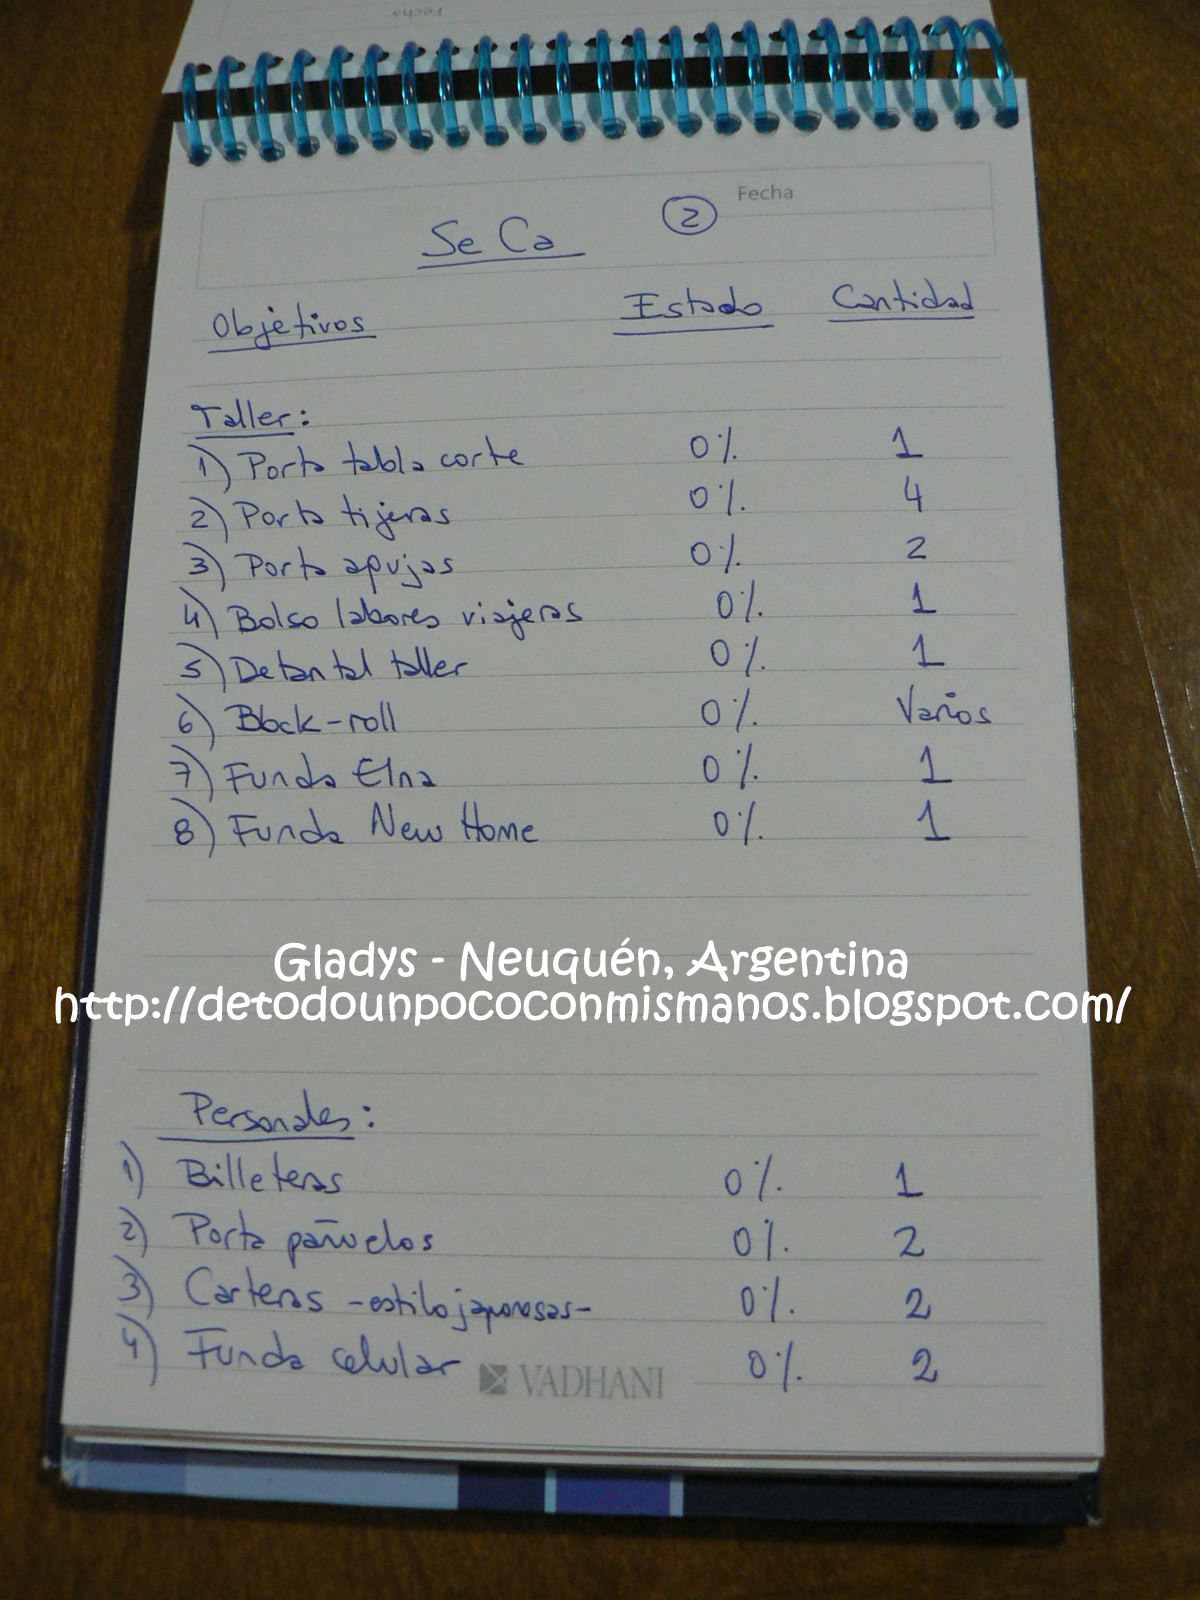 Fecha
Se Ca 2 Fecha
Objetivos Estado Cantidad
Taller:
1) Porta tabla corte 0% 1
2) Porta tijeras 0% 4
3) Porta agujas 0% 2
4) Bolso labores viajeras 0% 1
5) Delantal taller 0% 1
6) Block-roll 0% Varios
7) Funda Elna 0% 1
8) Funda New Home 0% 1
Gladys - Neuquén, Argentina
http://detodounpococonmismanos.blogspot.com/
Personales:
1) Billeteras 0% 1
2) Porta pañuelos 0% 2
3) Carteras -estilo japonesas- 0% 2
4) Funda celular 0% 2
VADHANI